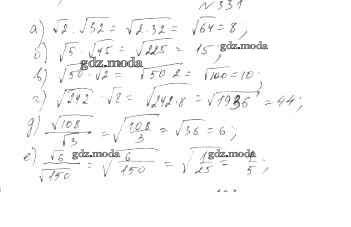 № 331
а) √2 · √32 = √2·32 = √64 = 8;
б) √5 · √45 = √225 = 15; gdz.moda
gdz.moda
в) √50 · √2 = √50·2 = √100 = 10;
г) √242 · √8 = √242·8 = √1936 = 44;
д) √108/√3 = √(108/3) = √36 = 6;
е) √6/√150 = √(6/150) = √(1/25) = 1/5;
gdz.moda gdz.moda